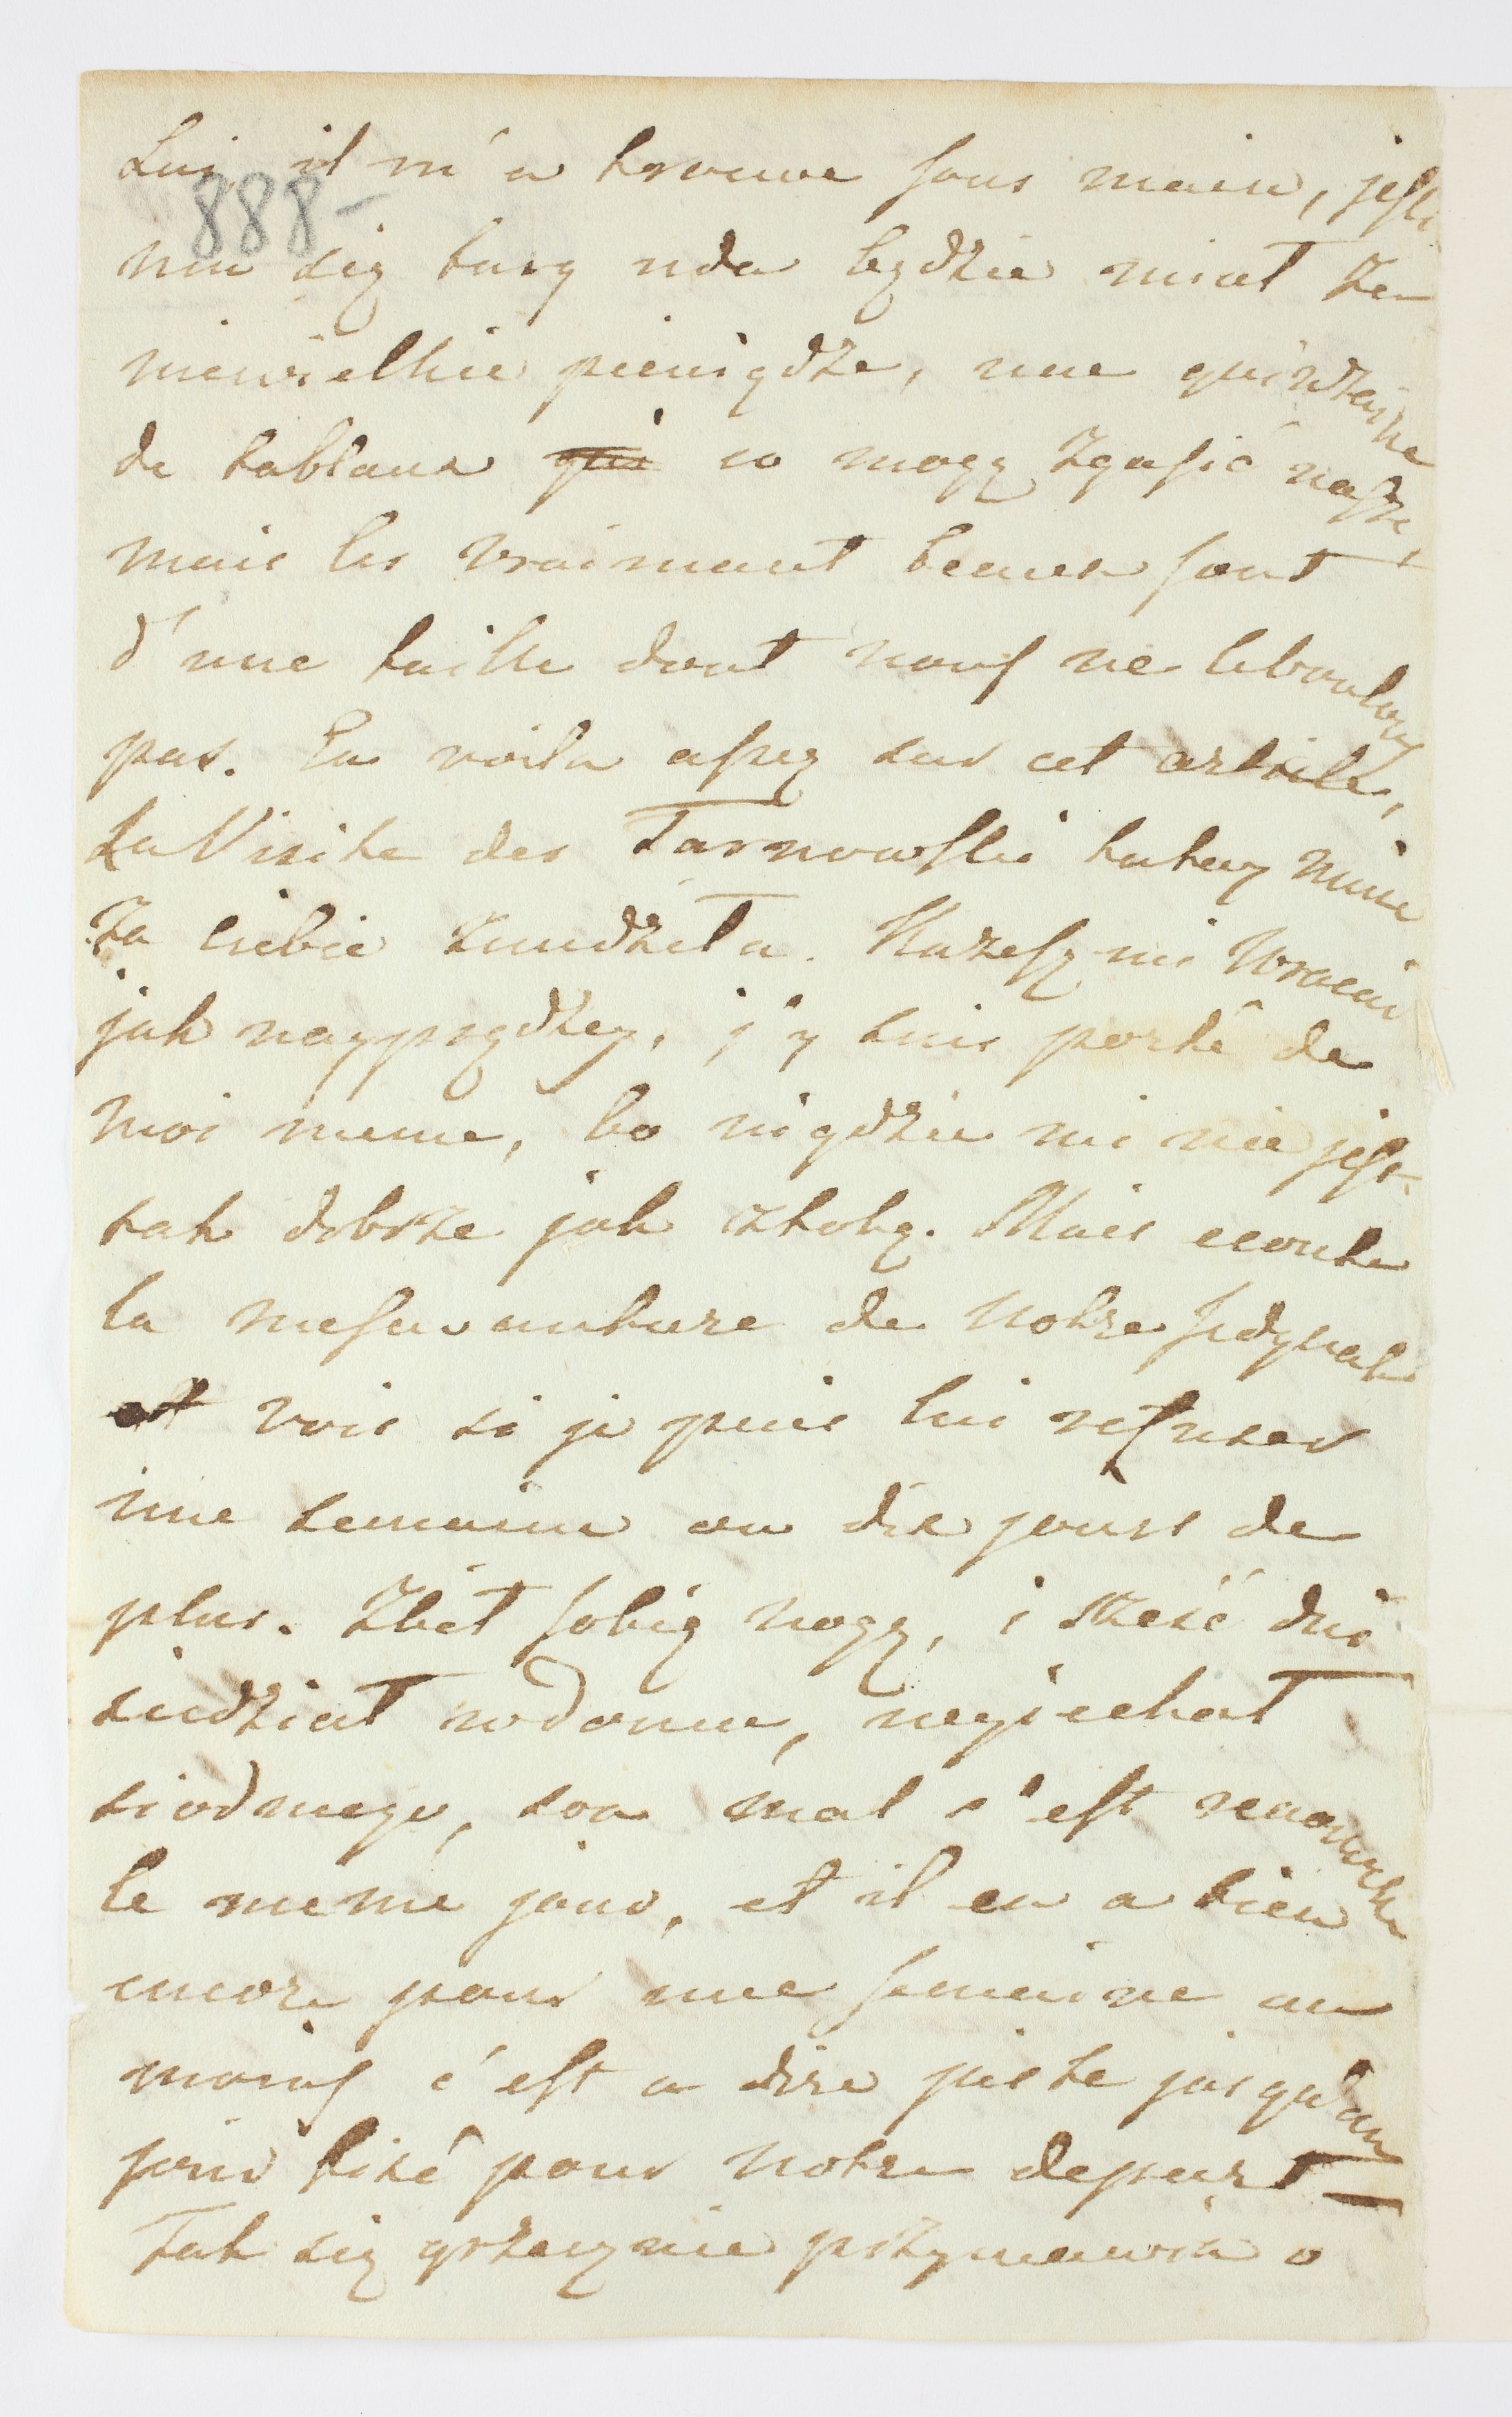 Lui, il m'a trouve sous main, jesli
888-
mu się targ uda będzie miał za
niewielkie pieniądze, une quinzaine
de tableaux qui co mogą zgasić nasze,
mais les vraiment beaux sont
d'une taille dont nous ne le voulons
pas. En voila assez sur cet article,
La Visite des Tarnowski tutay mnie
za ciebie znudziła. Każesz mi wracać
jak nayprędzey, j'y suis porté de
moi meme, bo nigdzie mi nie jest
tak dobrze jak ztobą. Mais ecoute
la mesavanture de notre Jedynak
et vois si je puis lui refuser
une semaine ou dix jours de
plus. Zbił sobię nogę, i sześć dni
siedział wdomu, wyjechał
siodmego, son mal s'est renouvelle
le meme jour, et il en a bien
encore pour une semaine au
moins c'est a dire juste jusqu'au
jour fixé pour notre depart —
Tak się grzecznie przymawia o